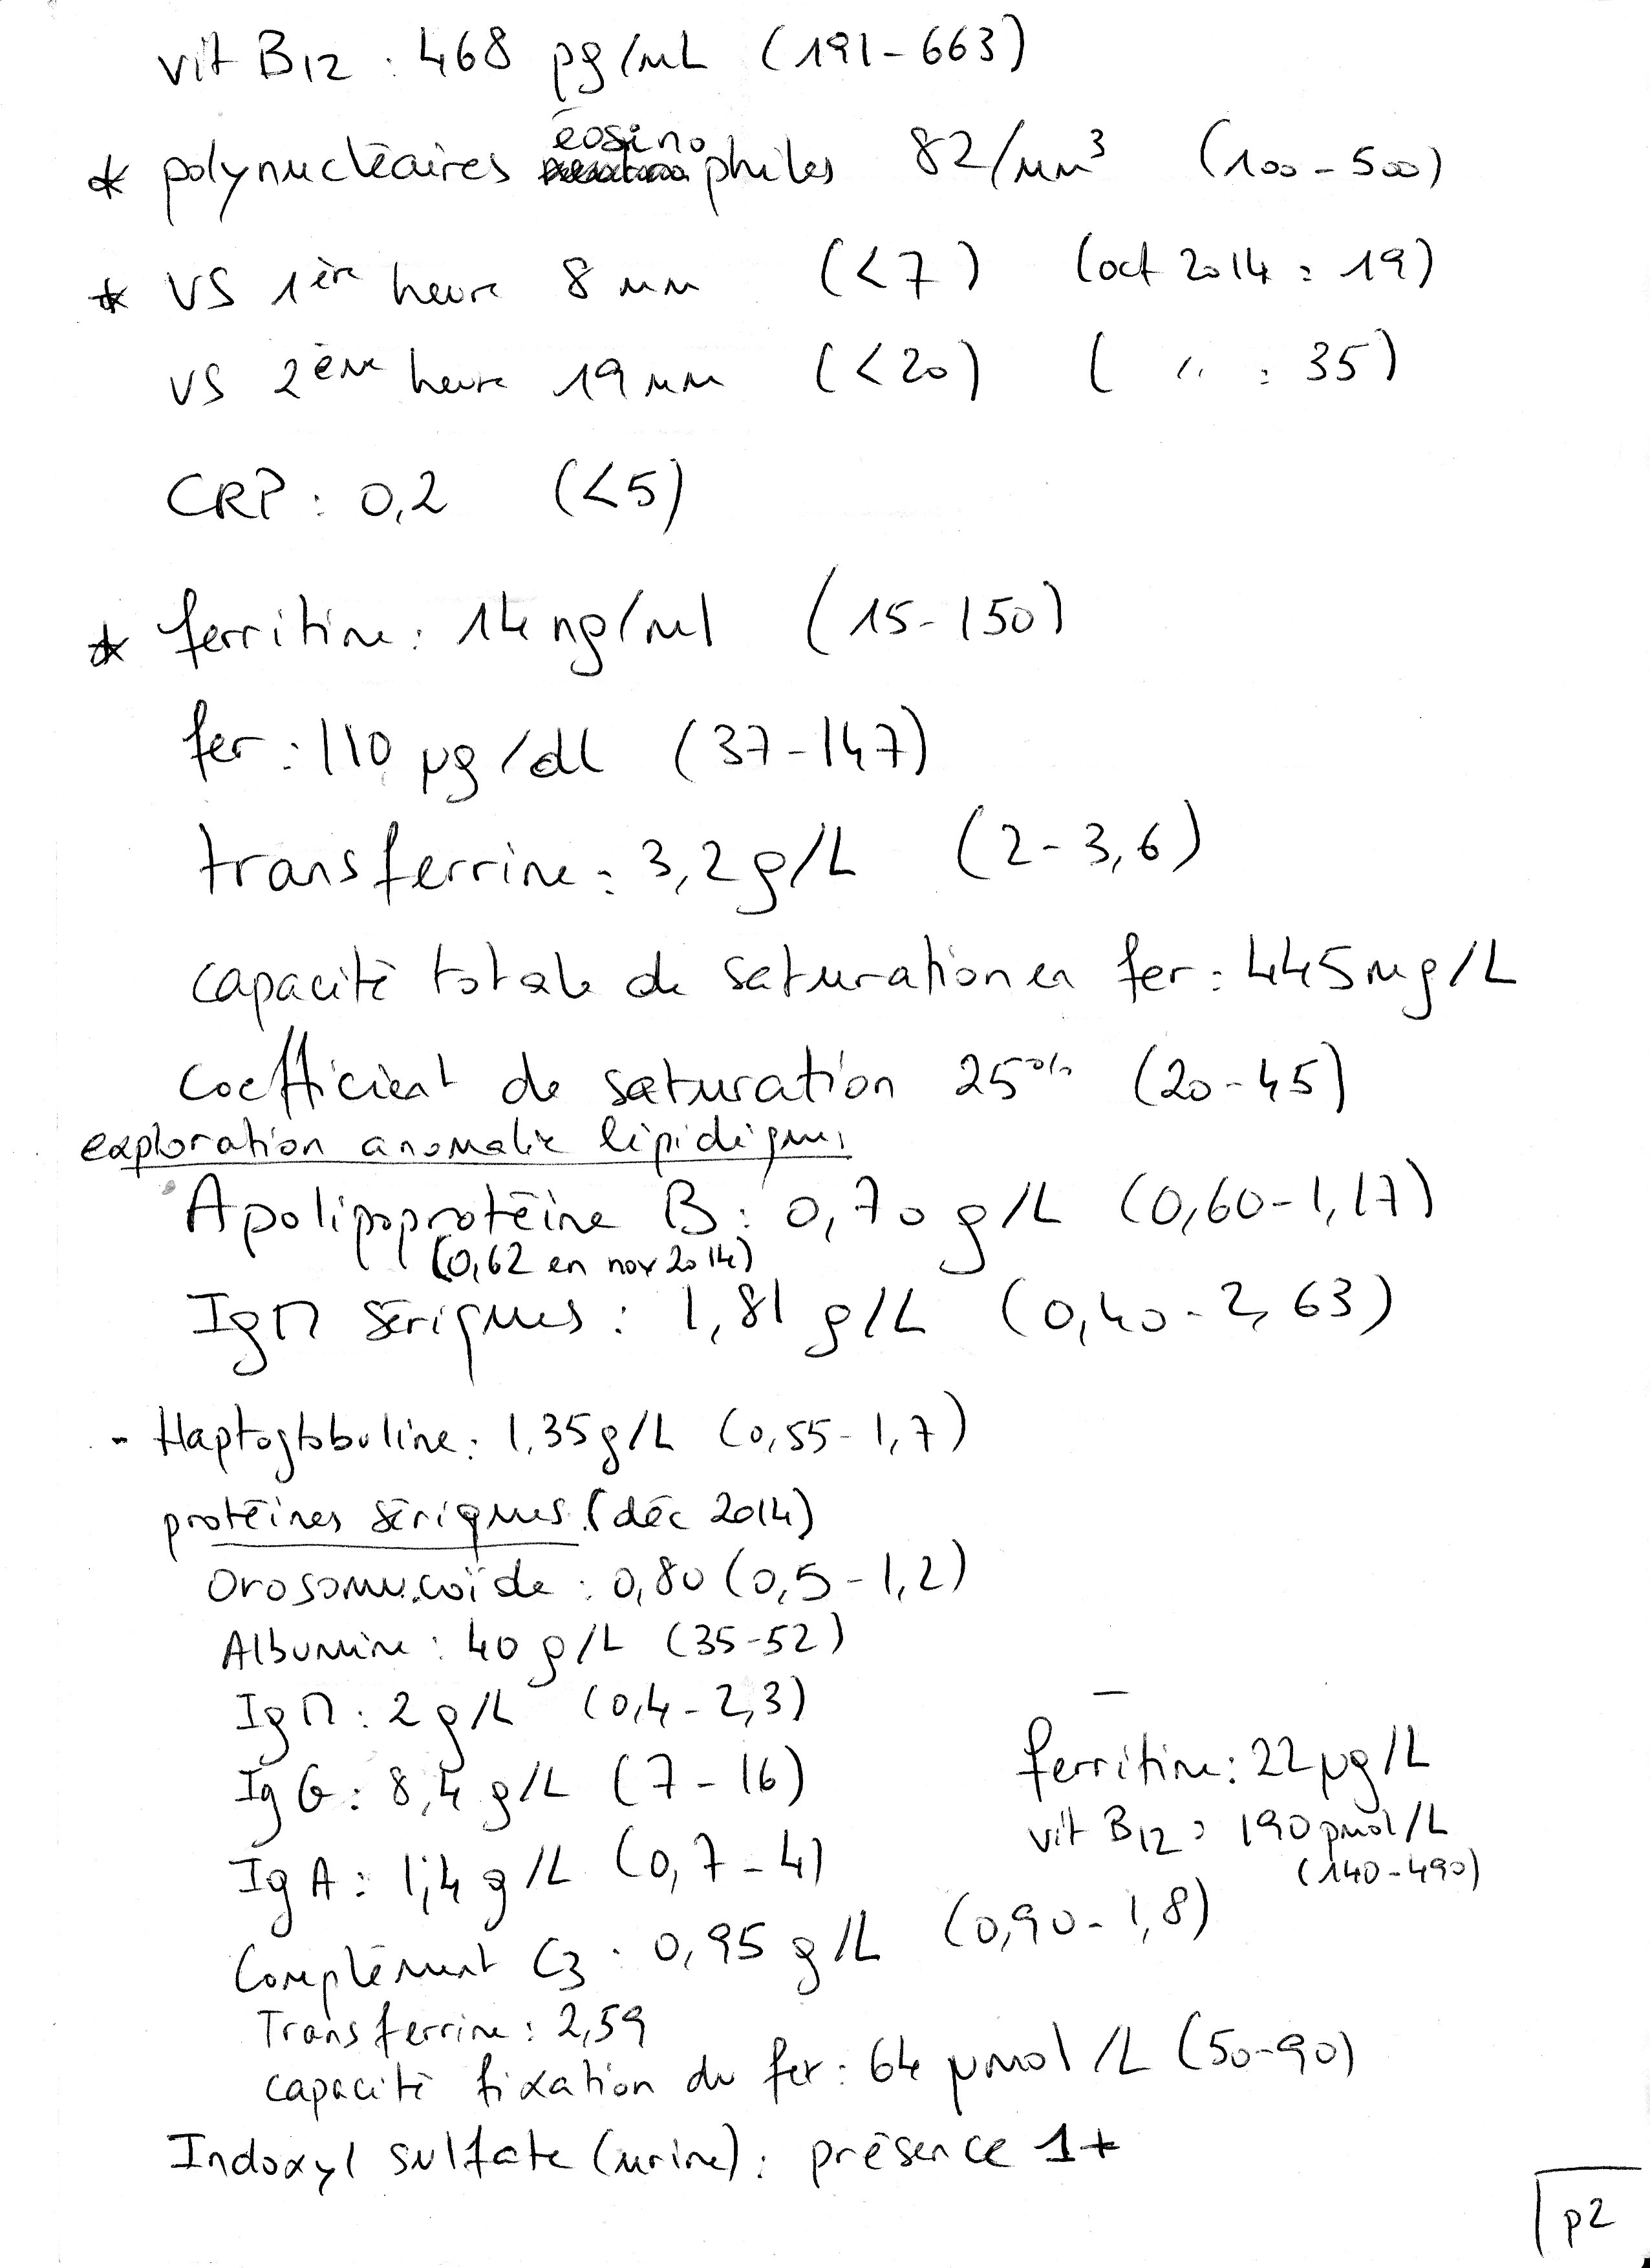 vit B12 : 468 pg/mL (191-663)
* polynucléaires éosinophiles 82/mm³ (100-500)
* VS 1ère heure 8 mm (<7) (oct 2014 : 19)
VS 2ème heure 19 mm (<20) ( " : 35)
CRP : 0,2 (<5)
* ferritine : 14 ng/ml (15-150)
fer : 110 µg/dL (37-147)
transferrine : 3,2 g/L (2-3,6)
capacité totale de saturation en fer : 445 mg/L
Coefficient de saturation 25% (20-45)
exploration anomalie lipidiques
Apolipoprotéine B : 0,70 g/L (0,60-1,17)
(0,62 en nov 2014)
IgM sériques : 1,81 g/L (0,40-2,63)
- Haptoglobuline : 1,35 g/L (0,55-1,7)
protéines sériques (déc 2014)
Orosomucoïde : 0,80 (0,5-1,2)
Albumine : 40 g/L (35-52)
IgM : 2 g/L (0,4-2,3)
IgG : 8,4 g/L (7-16)
IgA : 1,4 g/L (0,7-4)
Complément C3 : 0,95 g/L (0,90-1,8)
Transferrine : 2,59
capacité fixation du fer : 64 µmol/L (50-90)
ferritine : 22 µg/L
vit B12 : 190 pmol/L
(140-490)
Indoxyl sulfate (urine) : présence 1+
p2